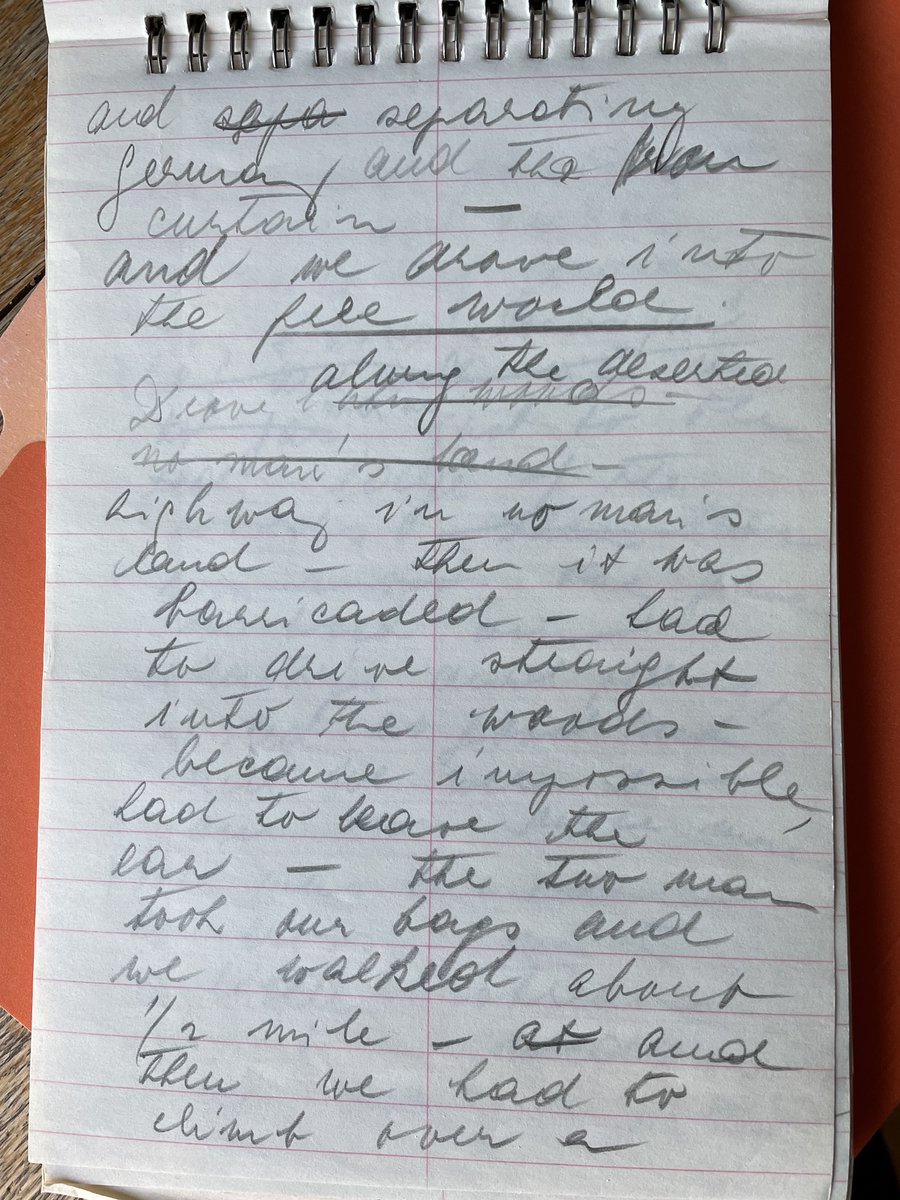 and sepa separating
Germany, and the Iron
curtain —
and we drove into
the free world.
along the deserted
Drove
no man's land –
highway in no man's
land – then it was
barricaded – had
to drive straight
into the woods –
became impossible,
had to leave the
car — the two man
took our bags and
we walked about
1/2 mile – at and
then we had to
climb over a